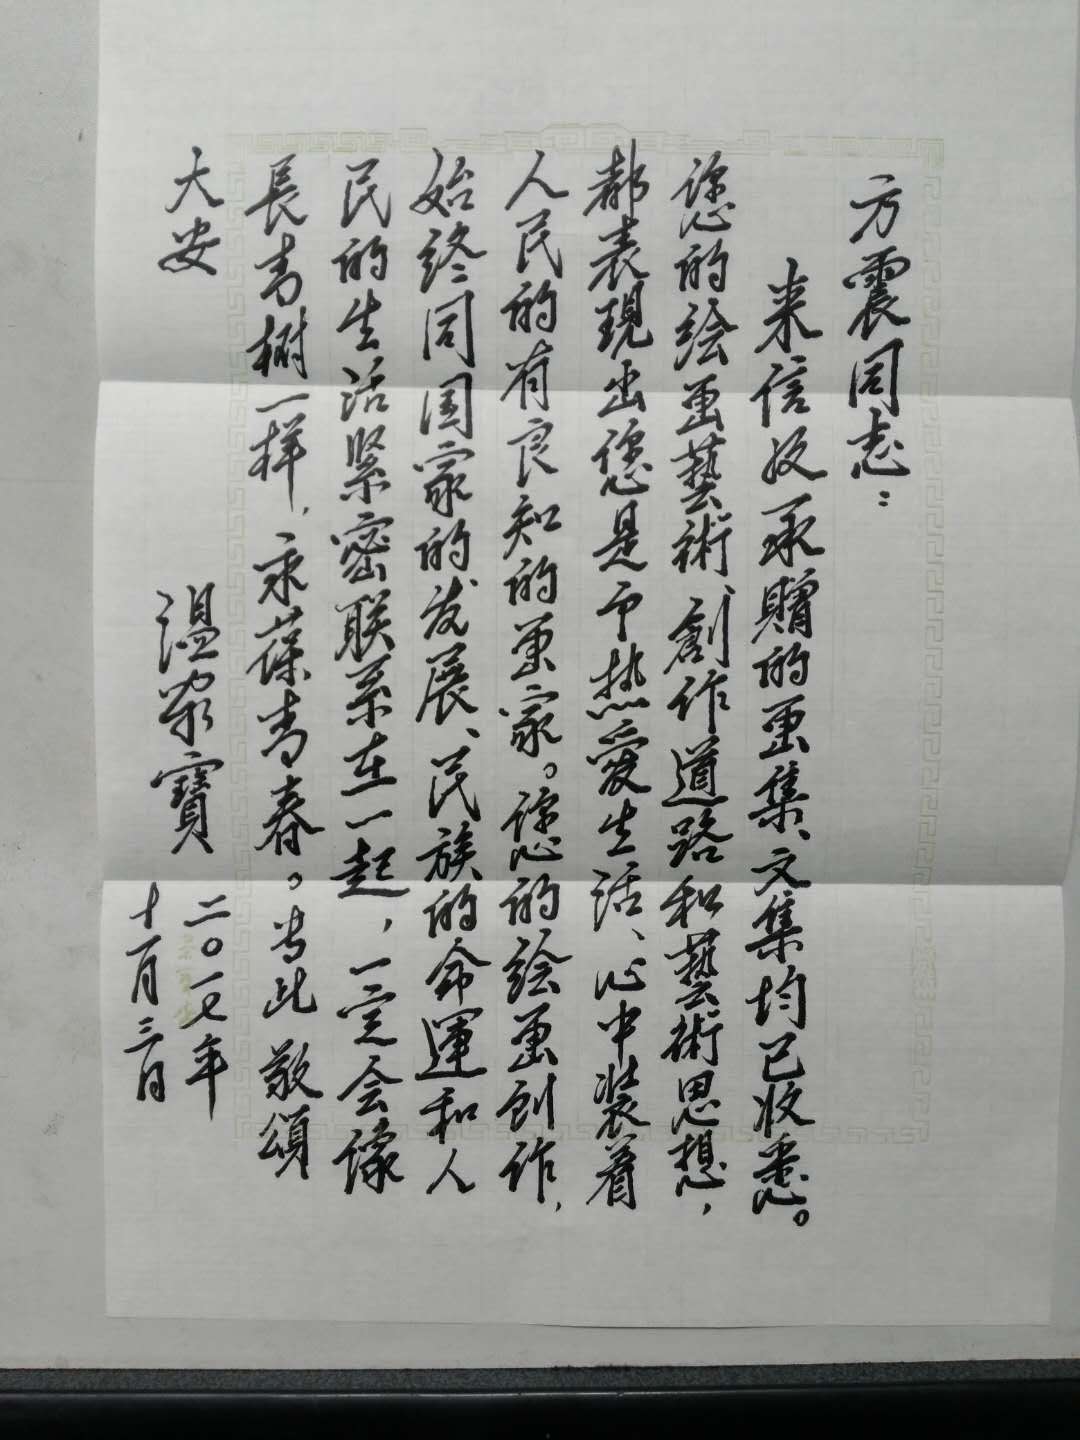 方震同志：
来信及承贈的画集、文集均已收悉。
您的绘画藝術、創作道路和藝術思想，
都表現出您是一个热爱生活、心中装着
人民的有良知的画家。您的绘画創作，
始终同国家的发展、民族的命運和人
民的生活紧密联系在一起，一定会像
長青樹一样，永葆青春。专此 敬頌
大安
温家寶
二〇一七年
十一月三日